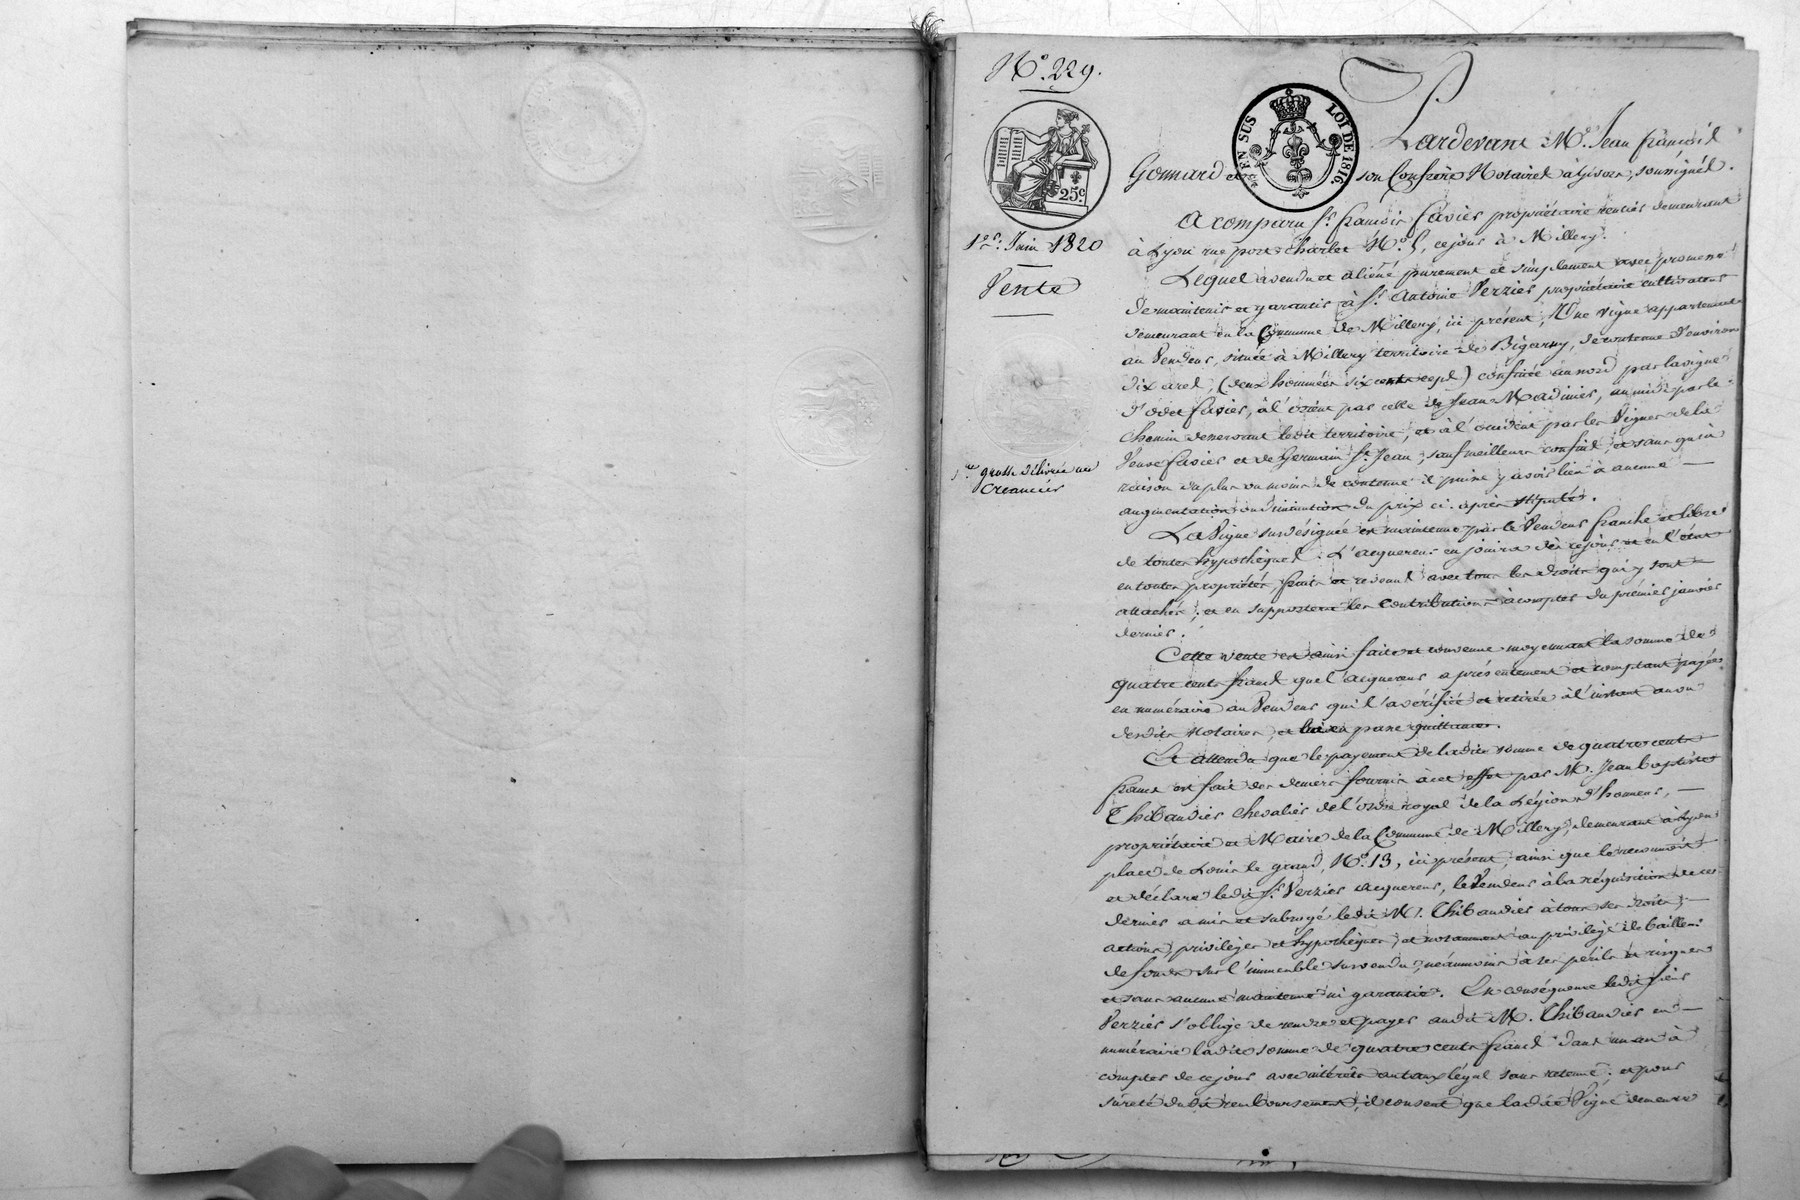 N.º 229.
EN SUS LOI DE 1816
25.c
1.er Juin 1820
Vente
1.re grosse délivrée au
Créancier
Pardevant M.e Jean françois
Gonnard et son Confrère Notaires à Givors, soussignés.
A comparu S.r françois favier propriétaire rentier demeurant
à Lyon rue port Charlet N.º 5, ce jour à Millery.
Lequel a vendu et aliéné purement et simplement avec promesse
de maintenir et garantir à S.r Antoine Verzier propriétaire cultivateur
demeurant en la Commune de Millery, ici présent, Une vigne appartenant
au Vendeur, située à Millery territoire de Bigarny, de contenue d'environ
dix ares, (deux hommées six cents sept) confinée au nord par la vigne
d'odet favier, à l'orient par celle de Jean Madinier, au midi par le
Chemin desservant ledit territoire, et à l'occident par les Vignes de la
Veuve favier et de Germain S.t Jean, sauf meilleurs confins, et sans qu'à
raison du plus ou moins de contenue il puisse y avoir lieu à aucune
augmentation ou diminution du prix ci-après stipulé.
La Vigne susdésignée est maintenue par le Vendeur franche et libre
de toutes hypothèques. L'acquereur en jouira dès ce jour et en l'état
en toutes propriétés, fruits et revenus avec tous les droits qui y sont
attachés; et en supportera les Contributions à compter du premier janvier
dernier.
Cette vente est ainsi faite et convenue moyennant la somme de
quatre cents francs que l'acquereur a présentement et comptant payée
en numéraire au Vendeur qui l'a vérifiée et retirée à l'instant au vu
desdits Notaires, et lui en passe quittance.
Et attendu que le payement de ladite somme de quatre cents
francs est fait des deniers fournis à cet effet par M. Jean Baptiste
Thibaudier Chevalier de l'ordre royal de la Légion d'honneur,
propriétaire et Maire de la Commune de Millery, demeurant à Lyon
place de Louis le grand, N.º 13, ici présent, ainsi que le reconnoit
et déclare ledit S.r Verzier acquereur, le Vendeur à la réquisition de ce
dernier a mis et subrogé ledit M. Thibaudier à tous ses droits,
actions, privilèges et hypothèques, et notamment au privilège de bailleur
de fonds sur l'immeuble survendu, néanmoins à ses périls et risques
et sans aucune maintenue ni garantie. En conséquence ledit sieur
Verzier s'oblige de rendre et payer audit M. Thibaudier en
numéraire ladite somme de quatre cents francs dans un an à
compter de ce jour avec intérêts au taux légal sans retenue; et pour
sûreté dudit remboursement, il consent que ladite Vigne demeure